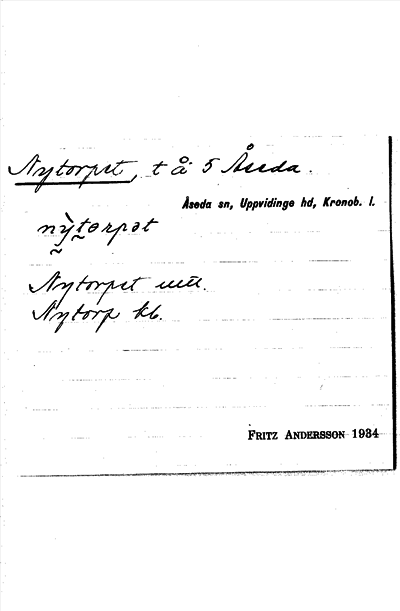 Nytorpet, t å 5 Åseda.
Åseda sn, Uppvidinge hd, Kronob. l.
nỳtorpət
Nytorpet
Nytorp kb.
FRITZ ANDERSSON 1934